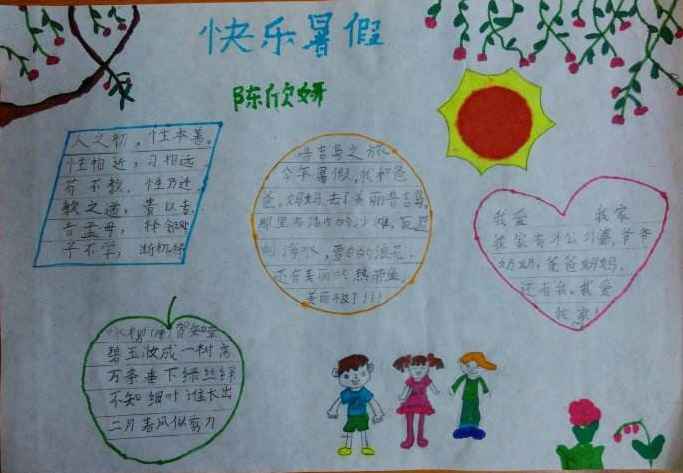 快乐暑假
陈欣妍
人之初，性本善。
性相近，习相远。
苟不教，性乃迁
教之道，贵以专
昔孟母，择邻处
子不学，断机杼
普吉岛之旅
今年暑假，我和爸
爸，妈妈，去了美丽普吉岛。
那里有洁白的沙滩，
的海水，雪白的浪花，
还有美丽的热带鱼
美丽极了!!!
我爱 我家
我家有外公外婆，爷爷
奶奶，爸爸妈妈，
还有我。我爱
我家!
咏柳（唐）贺知章
碧玉妆成一树高
万条垂下绿丝绦
不知细叶谁裁出
二月春风似剪刀